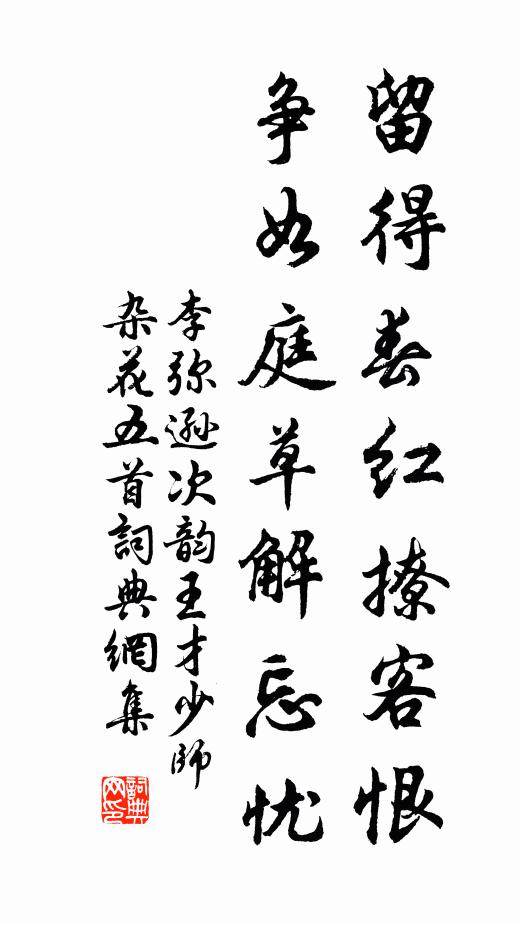 留得春红撩客恨
争如庭草解忘忧
李弥逊次韵王才少师
杂花五首詞典網集
詞典網印